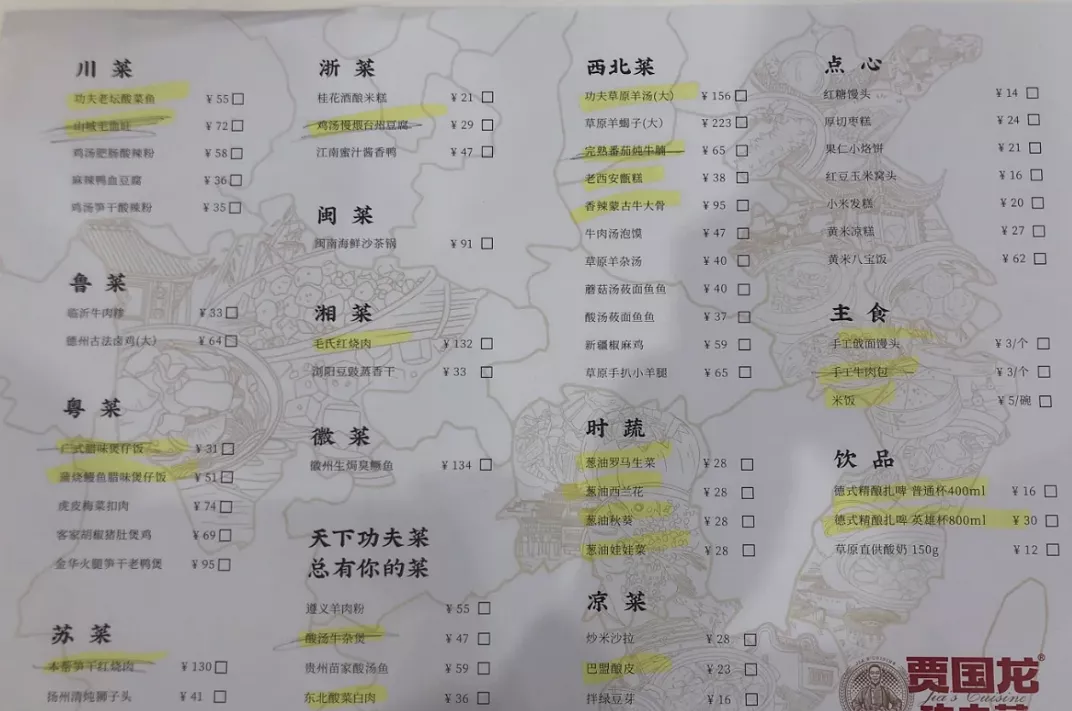 川 菜
功夫老坛酸菜鱼 ￥55
山城毛血旺 ￥72
鸡汤肥肠酸辣粉 ￥58
麻辣鸭血豆腐 ￥36
鸡汤笋干酸辣粉 ￥35
鲁 菜
临沂牛肉糁 ￥33
德州古法卤鸡(大) ￥64
粤 菜
广式腊味煲仔饭 ￥31
蒲烧鳗鱼腊味煲仔饭 ￥51
虎皮梅菜扣肉 ￥74
客家胡椒猪肚煲鸡 ￥69
金华火腿笋干老鸭煲 ￥95
苏 菜
本帮笋干红烧肉 ￥130
扬州清炖狮子头 ￥41
浙 菜
桂花酒酿米糕 ￥21
鸡汤慢煨台州豆腐 ￥29
江南蜜汁酱香鸭 ￥47
闽 菜
闽南海鲜沙茶锅 ￥91
湘 菜
毛氏红烧肉 ￥132
浏阳豆豉蒸香干 ￥33
徽 菜
徽州生焗臭鳜鱼 ￥134
天下功夫菜
总有你的菜
遵义羊肉粉 ￥55
酸汤牛杂煲 ￥47
贵州苗家酸汤鱼 ￥59
东北酸菜白肉 ￥36
西北菜
功夫草原羊汤(大) ￥156
草原羊蝎子(大) ￥223
完熟番茄炖牛腩 ￥65
老西安甑糕 ￥38
香辣蒙古牛大骨 ￥95
牛肉汤泡馍 ￥47
草原羊杂汤 ￥40
蘑菇汤莜面鱼鱼 ￥40
酸汤莜面鱼鱼 ￥37
新疆椒麻鸡 ￥59
草原手扒小羊腿 ￥65
时 蔬
葱油罗马生菜 ￥28
葱油西兰花 ￥28
葱油秋葵 ￥28
葱油娃娃菜 ￥28
凉 菜
炒米沙拉 ￥28
巴盟酿皮 ￥23
拌绿豆芽 ￥16
点 心
红糖馒头 ￥14
厚切枣糕 ￥24
果仁小烙饼 ￥21
红豆玉米窝头 ￥16
小米发糕 ￥20
黄米凉糕 ￥27
黄米八宝饭 ￥62
主 食
手工戗面馒头 ￥3/个
手工牛肉包 ￥3/个
米饭 ￥5/碗
饮 品
德式精酿扎啤 普通杯400ml ￥16
德式精酿扎啤 英雄杯800ml ￥30
草原直供酸奶 150g ￥12
贾国龙®
Jia's Cuisine